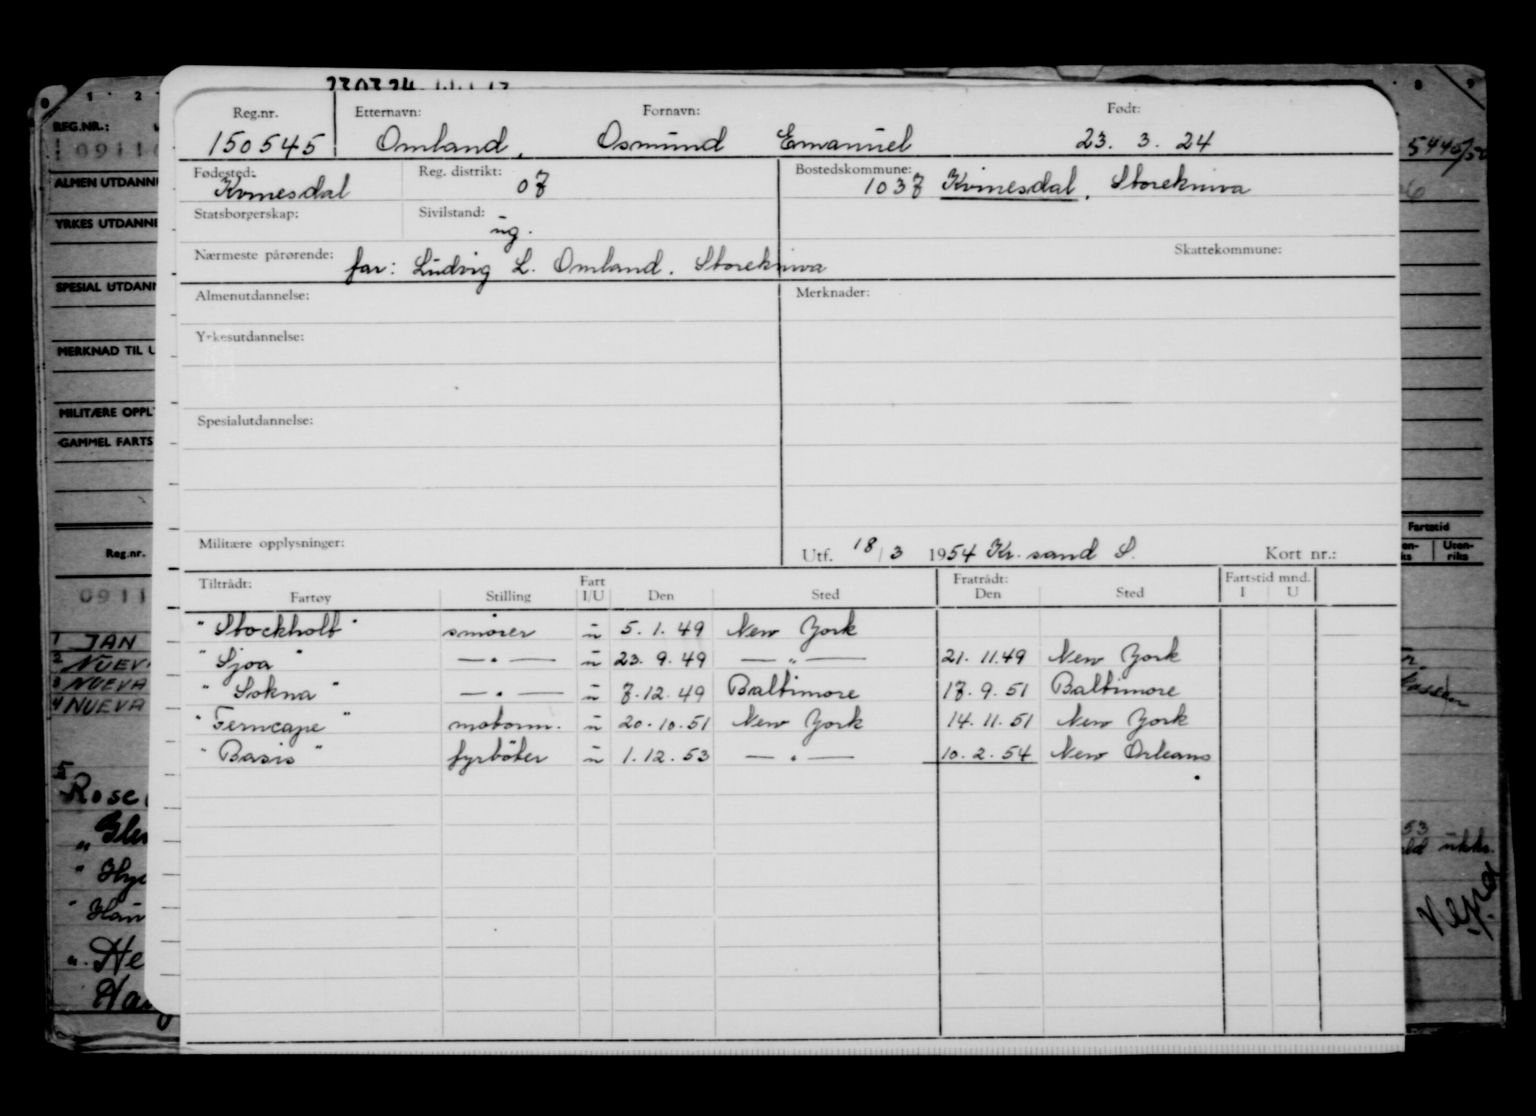 23.03.24
Reg.nr. Etternavn: Fornavn: Født:
150545 Omland, Osmund Emanuel 23. 3. 24
Fødested: Reg. distrikt: Bostedskommune:
Kvinesdal 07 1037 Kvinesdal, Storekvina
Statsborgerskap: Sivilstand: ug.
Nærmeste pårørende: far: Ludvig L. Omland. Storekvina Skattekommune:
Almenutdannelse: Merknader:
Yrkesutdannelse:
Spesialutdannelse:
Militære opplysninger: Utf. 18/3 1954 Kr. sand S. Kort nr.:
Tiltrådt: Fart Fratrådt: Fartstid mnd.
Fartøy Stilling I/U Den Sted Den Sted I U
"Stockholt" smører u 5. 1. 49 New York
"Sjoa" — " — u 23. 9. 49 — " — 21. 11. 49 New York
"Sokna" — " — u 7. 12. 49 Baltimore 17. 9. 51 Baltimore
"Ferncape" motorm. u 20. 10. 51 New York 14. 11. 51 New York
"Basis" fyrbøter u 1. 12. 53 — " — 10. 2. 54 New Orleans
REG.NR.:
ALMEN UTDANN
YRKES UTDANNE
SPESIAL UTDANN
MERKNAD TIL U
MILITÆRE OPPL
GAMMEL FARTS
Reg.nr.
0911
1 JAN
2 NUEV
3 NUEVA
4 NUEVA
5
Rose
Fartstid
Uten-
riks